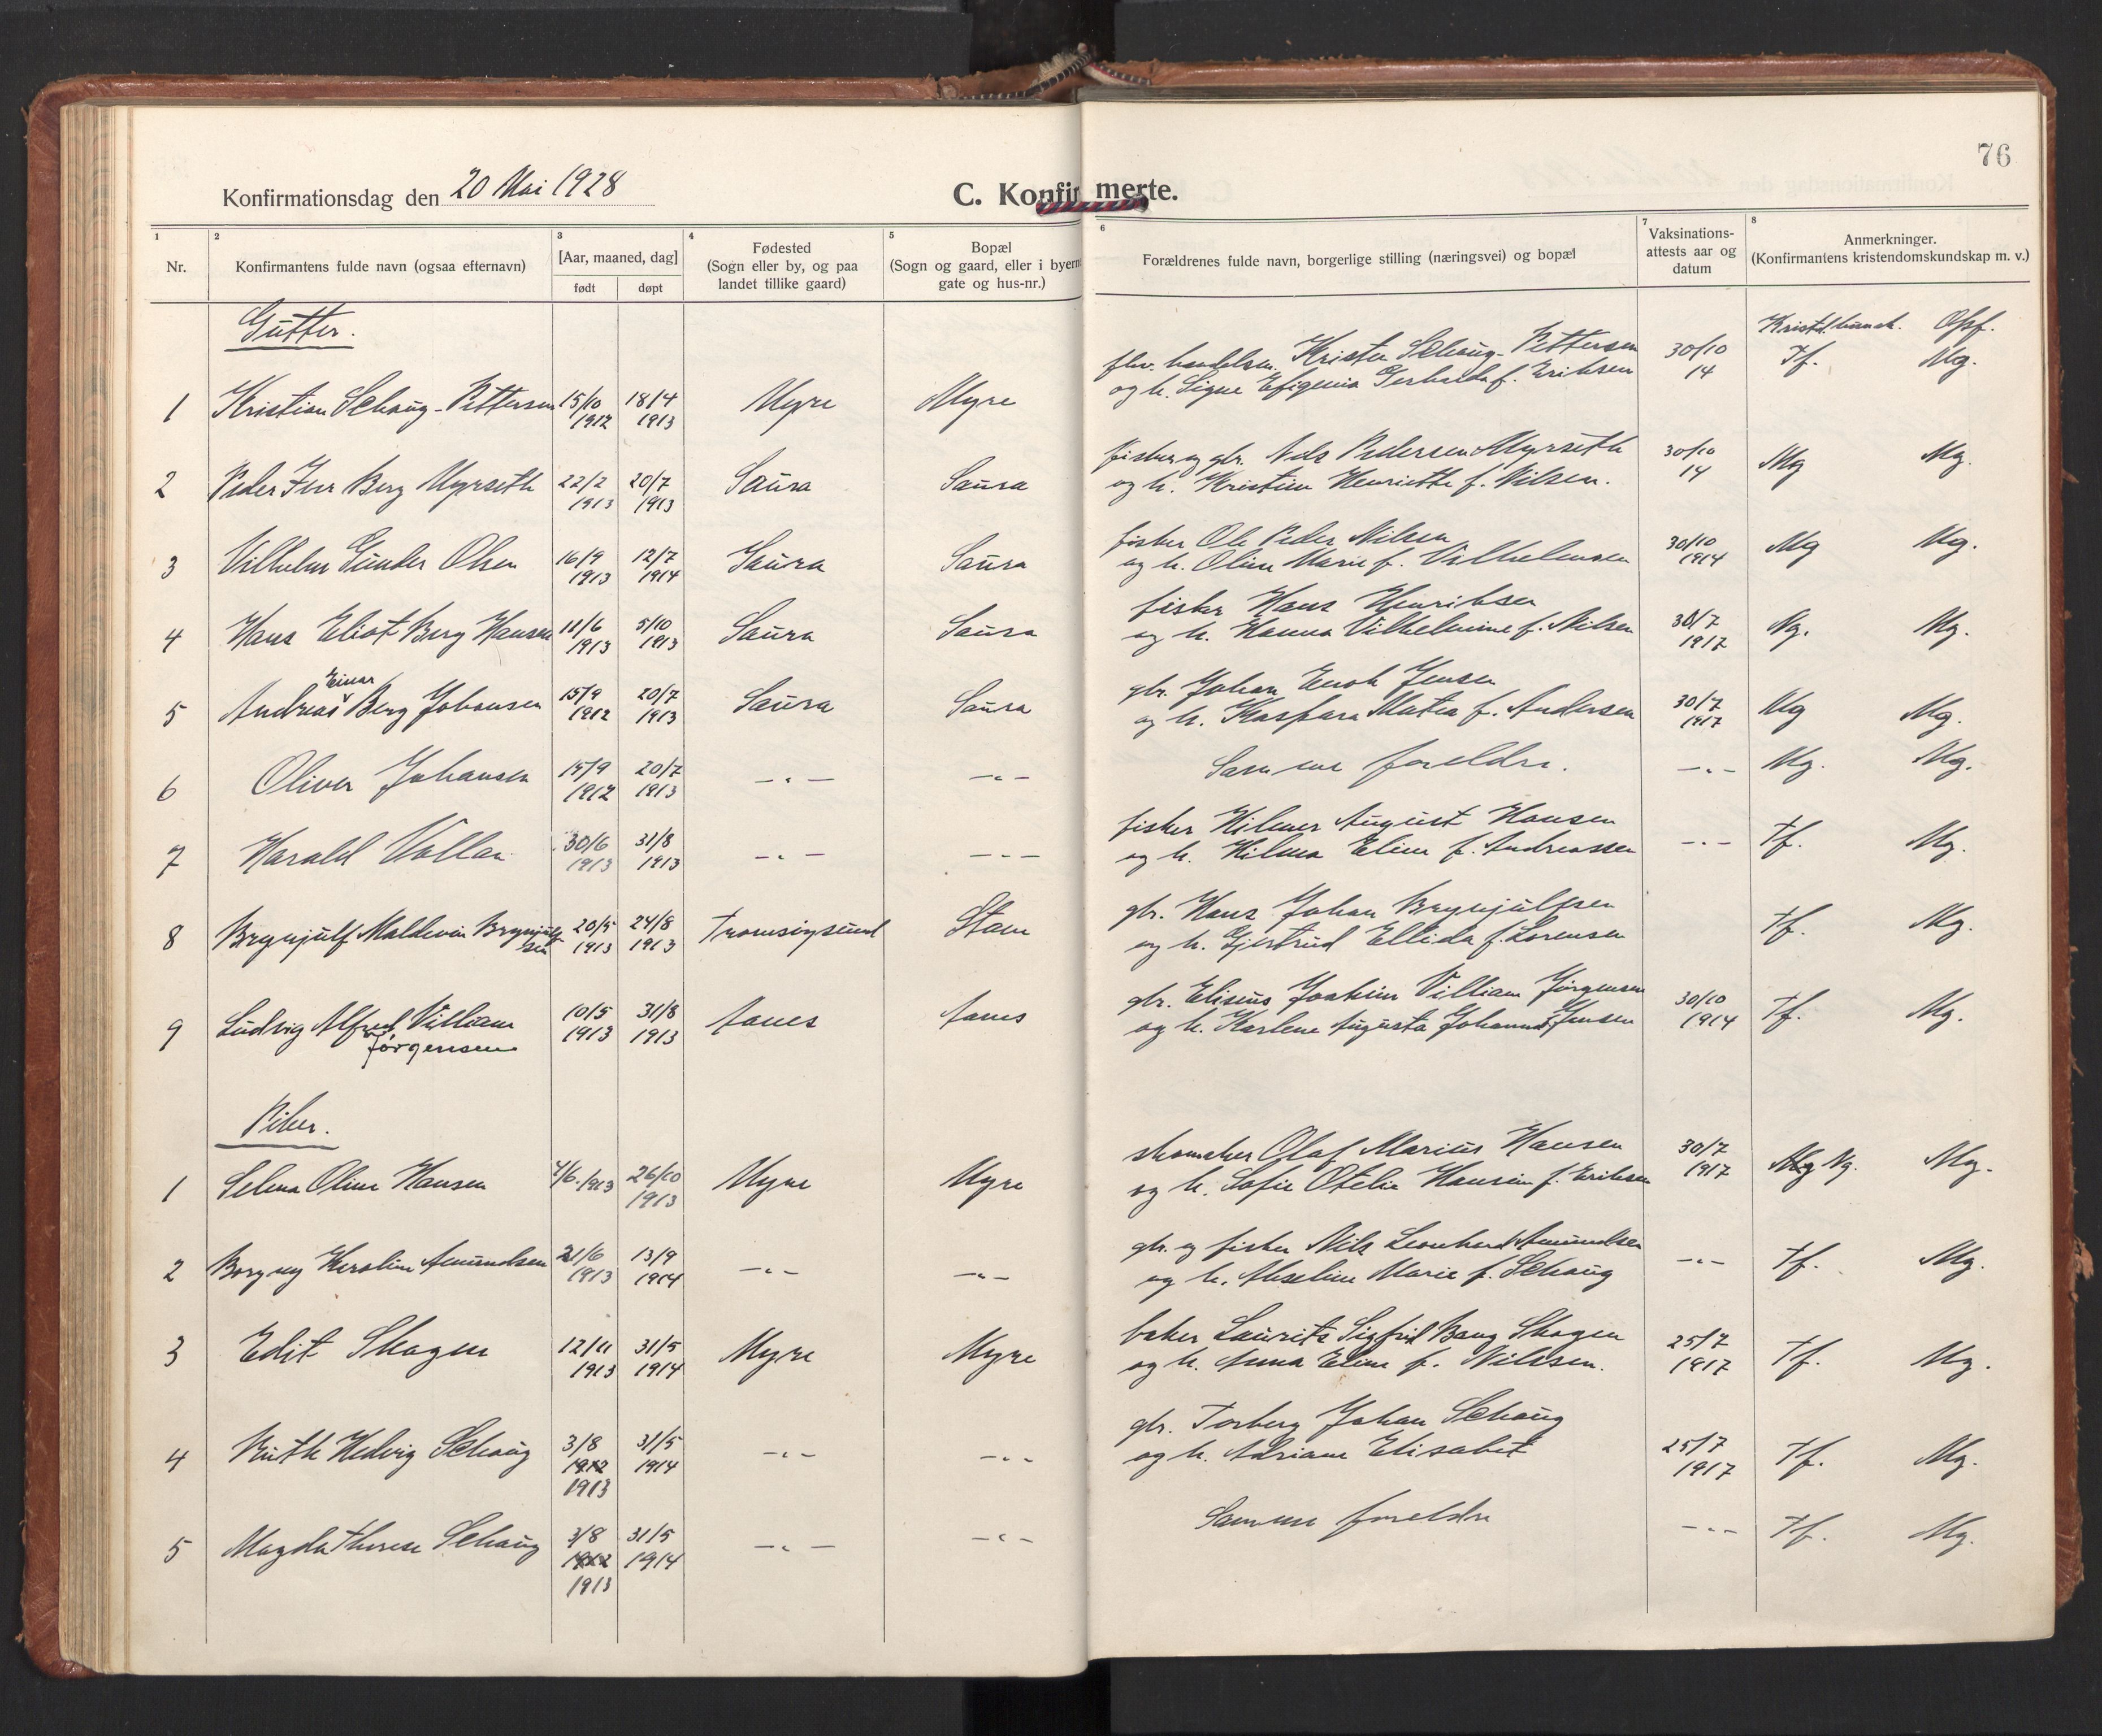 76
Konfirmationsdag den 20 Mai 1928
C. Konfirmerte.
1 2 3 4 5 6 7 8
Nr. Konfirmantens fulde navn (ogsaa efternavn) [Aar, maaned, dag] født døpt Fødested (Sogn eller by, og paa landet tillike gaard) Bopæl (Sogn og gaard, eller i byerne gate og hus-nr.) Forældrenes fulde navn, borgerlige stilling (næringsvei) og bopæl Vaksinations-attests aar og datum Anmerkninger. (Konfirmantens kristendomskundskap m. v.)
Gutter.
Kristd.kunsk. Opf.
1 Kristian Schaug-Pettersen 15/10 1912 18/4 1913 Myre Myre
fhv. handelsm. Krister Schaug-Pettersen 30/10 14 Tf. Mg.
og h. Signe Efigenia Gerharda f. Eriksen
2 Peder Iver Berg Myrseth 22/2 1913 20/7 1913 Saura Saura
fisker og gbr. Nils Pedersen Myrseth 30/10 14 Mg Mg.
og h. Kristine Henriette f. Nilsen.
3 Vilhelm Gunder Olsen 16/9 1913 12/7 1914 Saura Saura
fisker Ole Peder Nilsen 30/10 1914 Mg Mg.
og h. Oline Marie f. Vilhelmsen
4 Hans Eliot Berg Hansen 11/6 1913 5/10 1913 Saura Saura
fisker Hans Henriksen 30/7 1917 Ng. Mg.
og h. Hanna Vilhelmine f. Nilsen
5 Andreas Einar Berg Johansen 15/9 1912 20/7 1913 Saura Saura
gbr. Johan Enok Jensen 30/7 1917 Mg Mg.
og h. Kaspara Matea f. Andersen
6 Oliver Johansen 15/9 1912 20/7 1913 -"- -"-
Samme foreldre. -"- Mg. Mg.
7 Harald Vollan 30/6 1913 31/8 1913 -"- -"-
fisker Hilmer August Hansen -"- Tf. Mg.
og h. Hilma Eline f. Andreassen
8 Brynjulf Maldevin Brynjulfsen 20/5 1913 24/8 1913 Tromsøysund Stave
gbr. Hans Johan Brynjulfsen Tf. Mg.
og h. Gjertrud Ellida f. Lorensen
9 Ludvig Alfred Villiam Jørgensen 10/5 1913 31/8 1913 Aanes Aanes
gbr. Eliseus Joakim Villiam Jørgensen 30/10 1914 Tf. Mg.
og h. Karlene Augusta Johanna f. Jensen
Piker.
1 Selma Oline Hansen 4/6.1913 26/10 1913 Myre Myre
skomaker Olaf Marius Hansen 30/7 1917 Mg Ng. Mg.
og h. Sofie Otelie Hansine f. Eriksen
2 Borgny Karoline Amundsen 21/6 1913 13/9 1914 -"- -"-
gbr. og fisker Nils Leonhard Amundsen -"- Tf. Mg.
og h. Anseline Marie f. Schaug
3 Edit Skogen 12/11 1913 31/5 1914 Myre Myre
baker Laurits Sigfrid Bang Skogen 25/7 1917 Tf. Mg.
og h. Anna Eline f. Nilssen.
4 Ruth Hedvig Schaug 3/8 1912 1913 31/5 1914 -"- -"-
gbr. Torberg Johan Schaug 25/7 1917 Tf. Mg.
og h. Adriane Elisabet
5 Magda Therese Schaug 3/8 1912 1913 31/5 1914 -"- -"-
Samme foreldre -"- Tf. Mg.